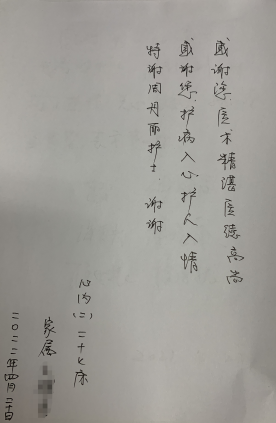 感谢您医术精湛医德高尚
感谢您护病入心护人入情
特谢周丹丽护士 谢谢
心内(二)二十七床
家属
二〇二二年四月二十日